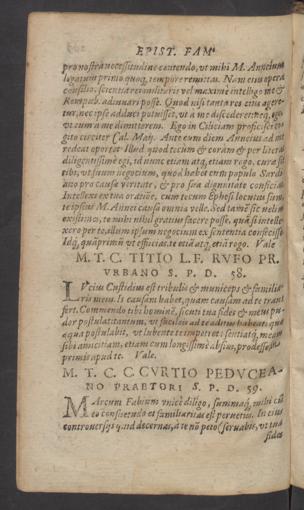 EPIST. FAM.
pro nostra necessitudine contendo, ut mihi M. Anneium
legatum primo quoq; tempore remittas. Nam eius opera
consilio, scientia rei militaris vel maxime intelligo me &
Rempub. adiuvari posse. Quod nisi tanta res eius agere-
tur, nec ipse adduci potuisset, ut a me discederet: neq; ego
ut eum a me dimitterem. Ego in Ciliciam proficisci co-
gito circiter Cal. Maij. Ante eum diem Anneius ad me
redeat oportet. Illud quod tecum & coram & per literas
diligentissime egi, id nunc etiam atq; etiam rogo, curæ sit
tibi, ut suum negocium, quod habet cum populo Sardi-
ano pro causæ veritate, & pro sua dignitate conficiat.
Intellexi ex tua oratione, cum tecum Ephesi locutus sum,
te ipsius M. Annei causa omnia velle. Sed tamen sic velim
existimes, te mihi nihil gratius facere posse, quam si intelle-
xero per te, illum ipsum negocium ex sententia confecisse.
Idq; quàmprimùm ut efficias, te etiã atq; etiã rogo. Vale
M. T. C. TITIO L. F. RVFO PR.
VRBANO S. P. D. 58.
LVcius Custidius est tribulis & municeps & familia-
ris meus. Is causam habet, quam causam ad te
fert. Commendo tibi hominẽ, sicuti tua fides & meus pu-
dor postulat: tantum, ut faciles ad te aditus habeat: quæ
æqua postulabit, ut lubente te impetret: sentiatq; meam
sibi amicitiam, etiam cum longissime absim, prodesse, in
primis apud te. Vale.
M. T. C. C CVRTIO PEDVCEA-
NO PRAETORI S. P. D. 59.
MArcum Fabium unice diligo, summaq; mihi cũ
eo consuetudo et familiaritas est pervetus. In eius
controversijs quid decernas, à te nõ peto (servabis, ut tua
fides